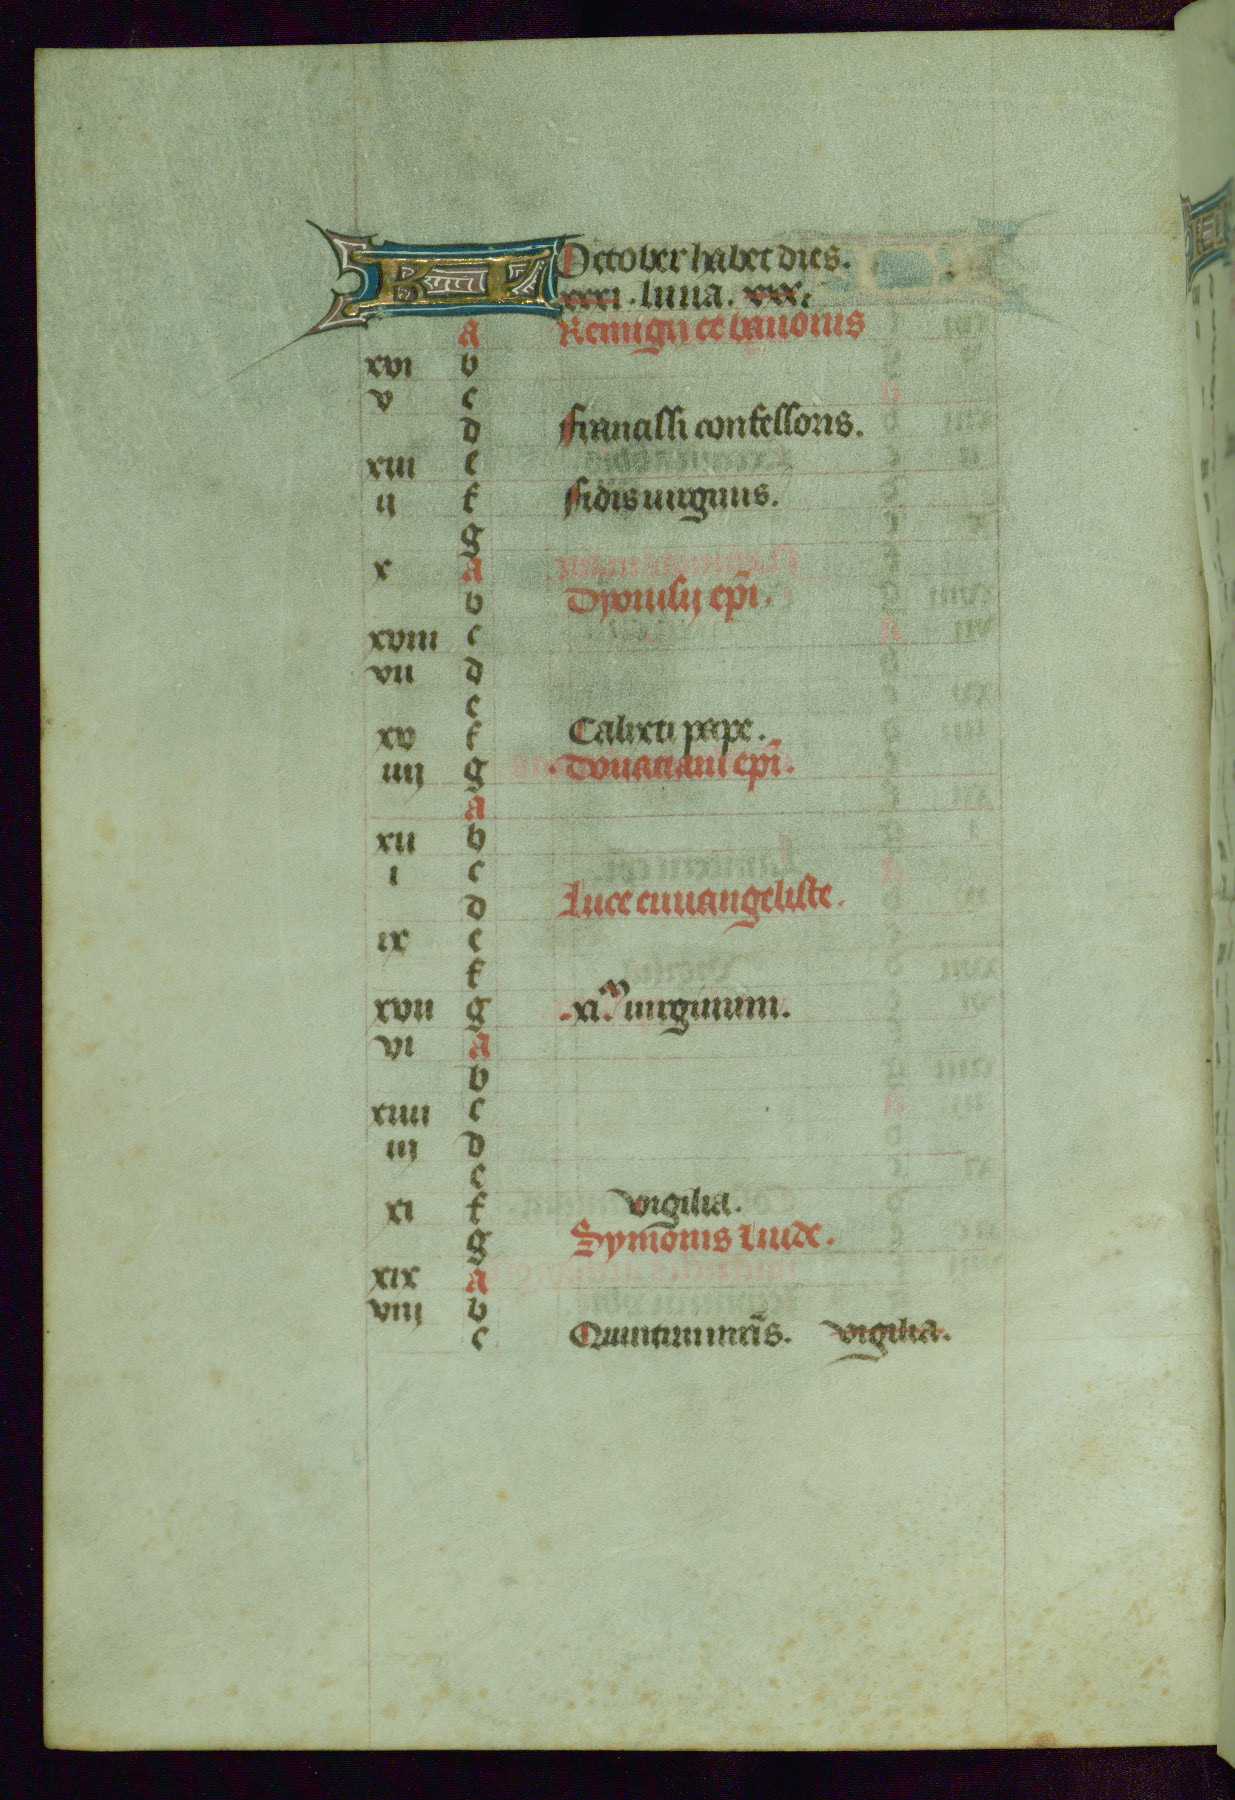 KL October habet dies.
xxxi . luna . xxx.
a Remigii et bauonis
xvi b
v c
d Francissi confessoris.
xiii e
ii f Fidis uirginis.
g
x a
b Dyonisii ep̄i.
xviii c
vii d
e
xv f Calixti pape.
iiii g . Donaciani ep̄i.
a
xii b
i c
d Luce euuangeliste.
ix e
f
xvii g .xi.ᵐ uirginum.
vi a
b
xiiii c
iii d
e
xi f vigilia.
g Symonis & iude.
xix a
viii b
c Quintini mr̄is. vigilia.